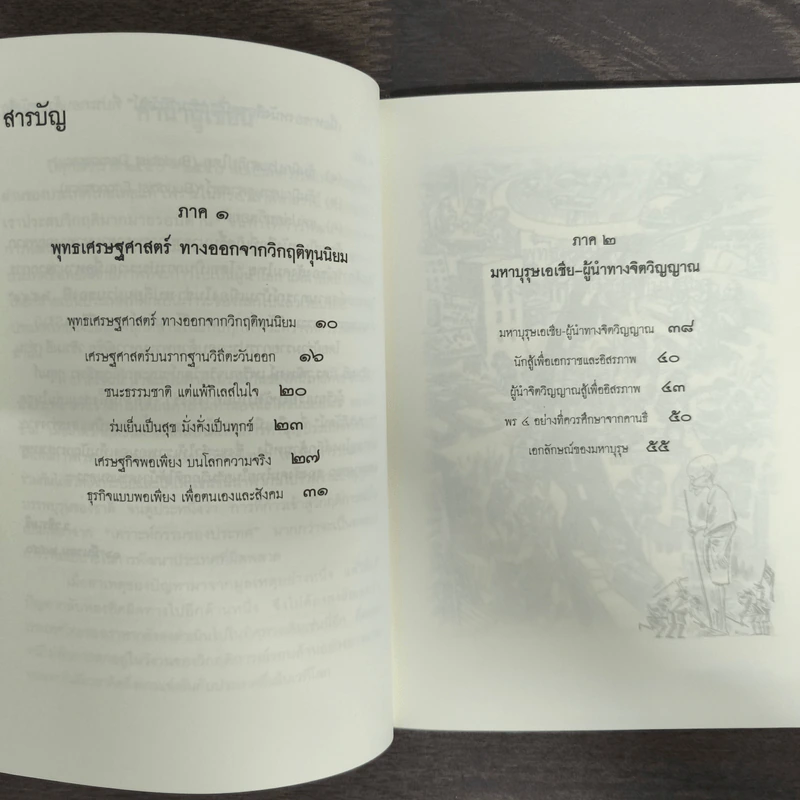 สารบัญ
ภาค ๑
พุทธเศรษฐศาสตร์ ทางออกจากวิกฤติทุนนิยม
พุทธเศรษฐศาสตร์ ทางออกจากวิกฤติทุนนิยม ๑๐
เศรษฐศาสตร์บนรากฐานวิถีตะวันออก ๑๖
ชนะธรรมชาติ แต่แพ้กิเลสในใจ ๒๐
ร่มเย็นเป็นสุข มั่งคั่งเป็นทุกข์ ๒๓
เศรษฐกิจพอเพียง บนโลกความจริง ๒๗
ธุรกิจแบบพอเพียง เพื่อตนเองและสังคม ๓๑
ภาค ๒
มหาบุรุษเอเชีย-ผู้นำทางจิตวิญญาณ
มหาบุรุษเอเชีย-ผู้นำทางจิตวิญญาณ ๓๘
นักสู้เพื่อเอกราชและอิสรภาพ ๔๐
ผู้นำจิตวิญญาณสู้เพื่ออิสรภาพ ๔๓
พร ๔ อย่างที่ควรศึกษาจากคานธี ๕๐
เอกลักษณ์ของมหาบุรุษ ๕๕